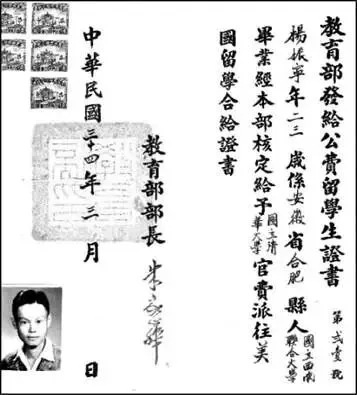 教育部發給公費留學生證書
第貳壹號
楊振寧年二三歲係安徽省合肥縣人
國立西南聯合大學
畢業經本部核定給予
國立清華大學
官費派往美
國留學合給證書
教育部部長
朱家驊
中華民國三十四年三月 日